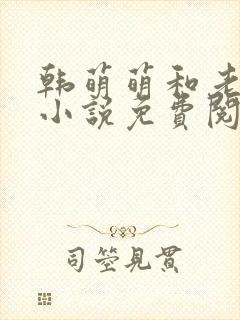 韩萌萌和老
小说免费阅
司箜見貫